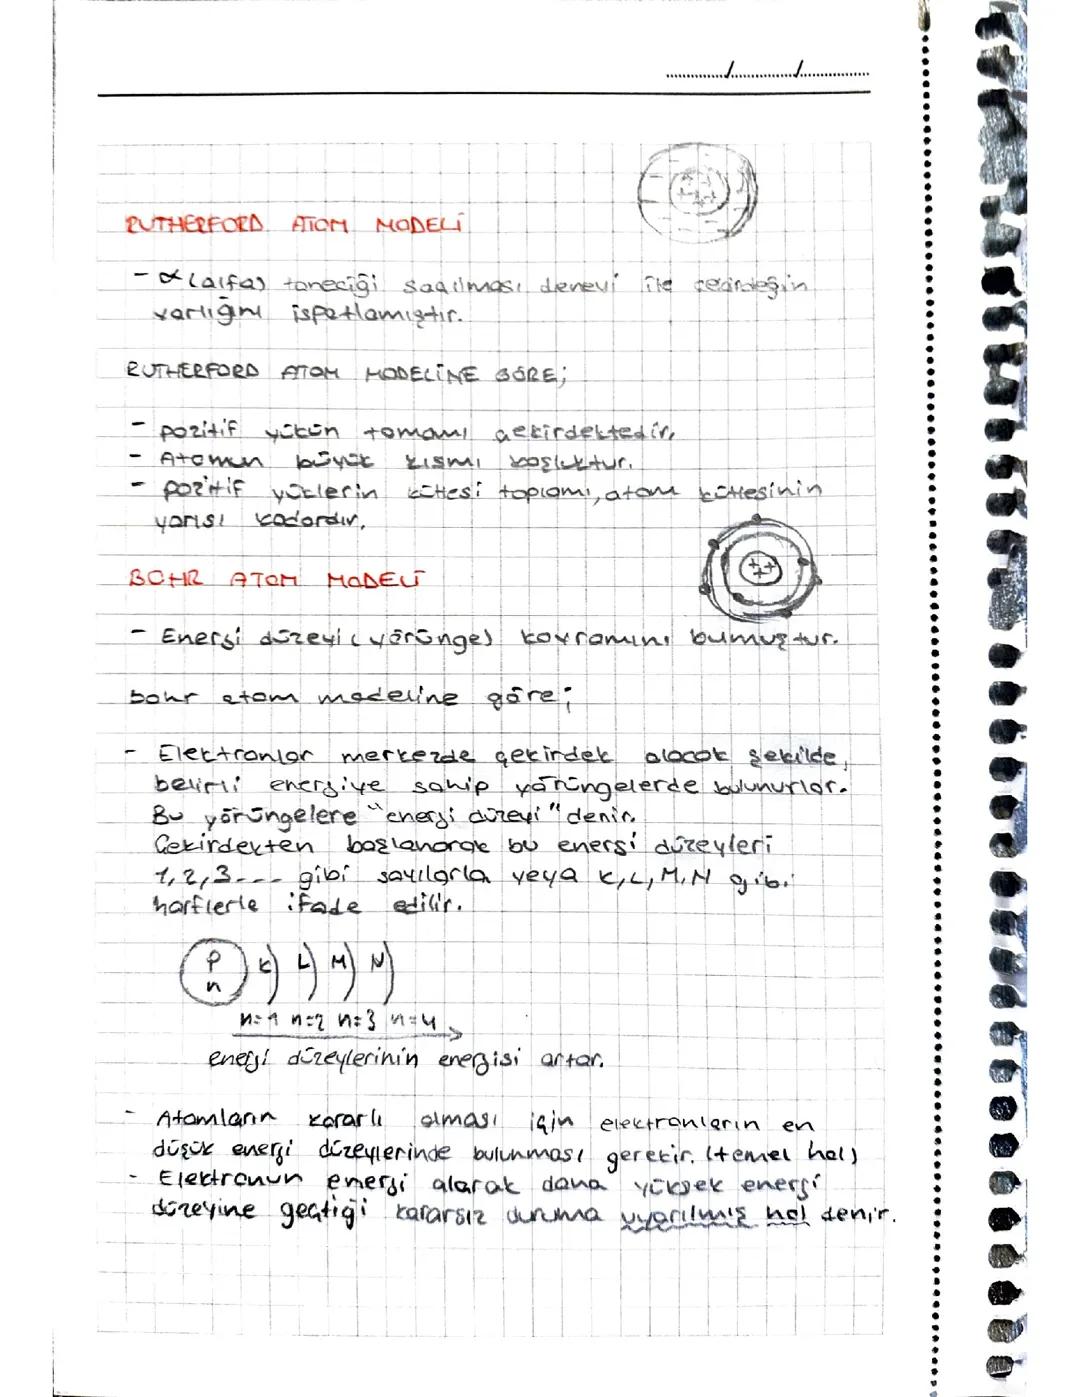 RUTHERFORD ATOM MODELİ
- α (alfa) taneciği saçılması deneyi ile çekirdeğin
varlığını ispatlamıştır.
RUTHERFORD ATOM MODELİNE GÖRE;
- pozitif yükün tamamı çekirdektedir.
- Atomun büyük kısmı boşluktur.
- pozitif yüklerin kütlesi toplamı, atom kütlesinin
yarısı kadardır.
+ + +
BOHR ATOM MODELİ
- Enerji düzeyi (yörünge) kavramını bumuştur.
bohr atom modeline göre;
- Elektronlar merkezde çekirdek olacak şekilde,
belirli enerjiye sahip yörüngelerde bulunurlar.
Bu yörüngelere "enerji düzeyi" denir.
Çekirdekten başlanarak bu enerji düzeyleri
1, 2, 3--- gibi sayılarla veya K, L, M, N gibi
harflerle ifade edilir.
p K) L) M) N)
n
n=1 n=2 n=3 n=4
enerji düzeylerinin enerjisi artar.
- Atomların kararlı olması için elektronların en
düşük enerji düzeylerinde bulunması gerekir. (temel hal)
- Elektronun enerji alarak daha yüksek enerji
düzeyine geçtiği kararsız duruma uyarılmış hal denir.